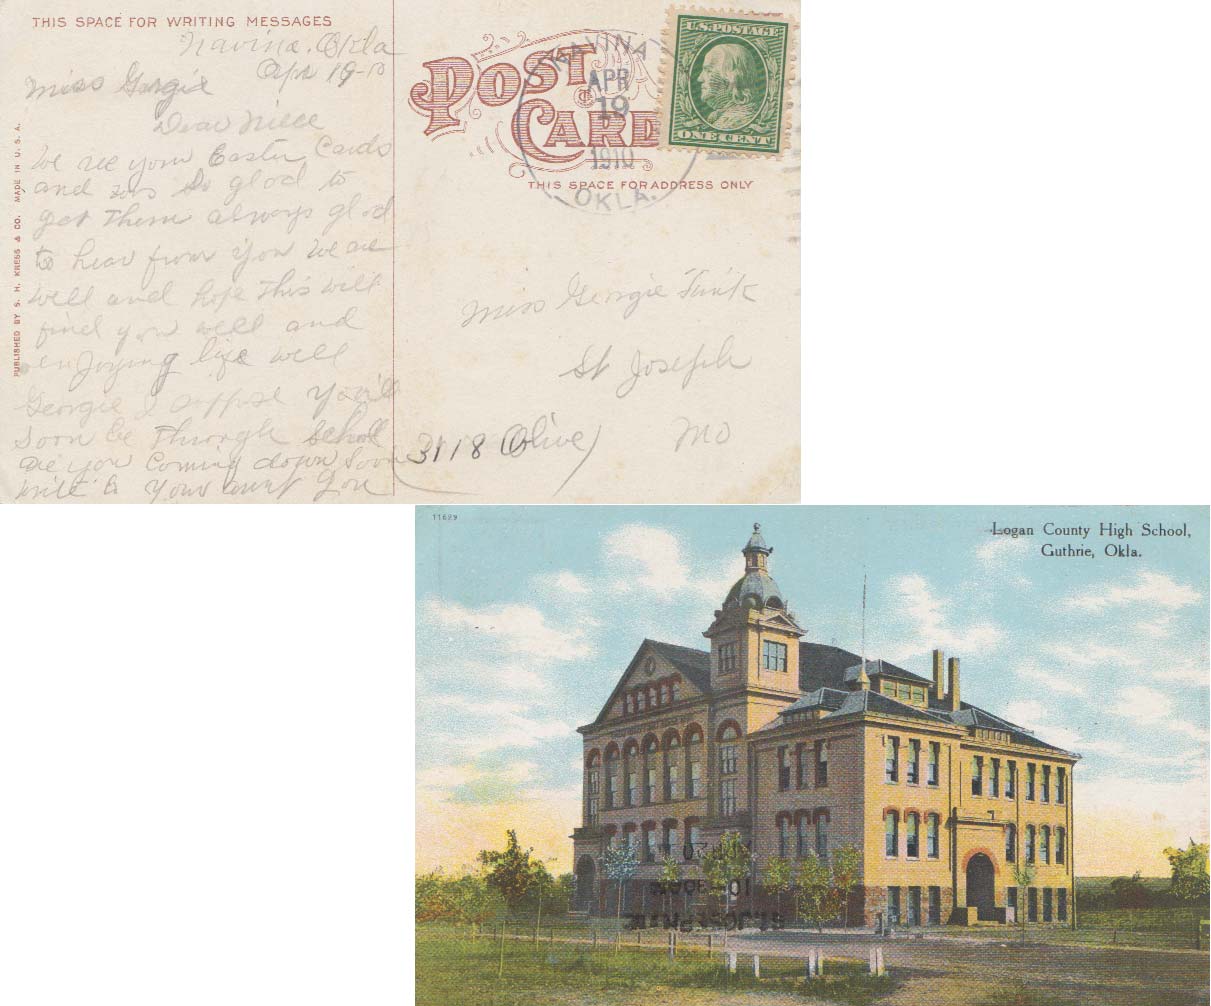 THIS SPACE FOR WRITING MESSAGES
Navina, Okla
Apr 19-10
Miss Georgie
Dear Niece
We rec your Easter Cards
and was so glad to
get them always glad
to hear from you We are
well and hope this will
find you well and
enjoying life well
Georgie I suppose you'll
soon be through scholl
are you coming down soon
write to your aunt
PUBLISHED BY S. H. KRESS & CO. MADE IN U. S. A.
POST CARD
THIS SPACE FOR ADDRESS ONLY
NAVINA
APR
19
1910
OKLA.
U.S. POSTAGE
ONE CENT
Miss Georgie Funk
St Joseph
3118 Olive Mo
11629
Logan County High School,
Guthrie, Okla.
ST. JOSEPH